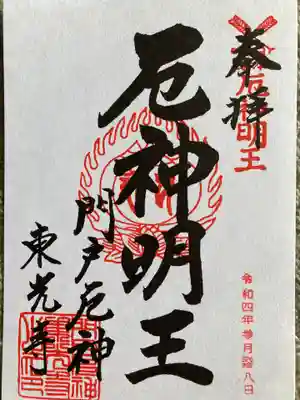 奉拝
厄神明王
令和四年参月拾八日
厄神明王
門戸厄神
東光寺